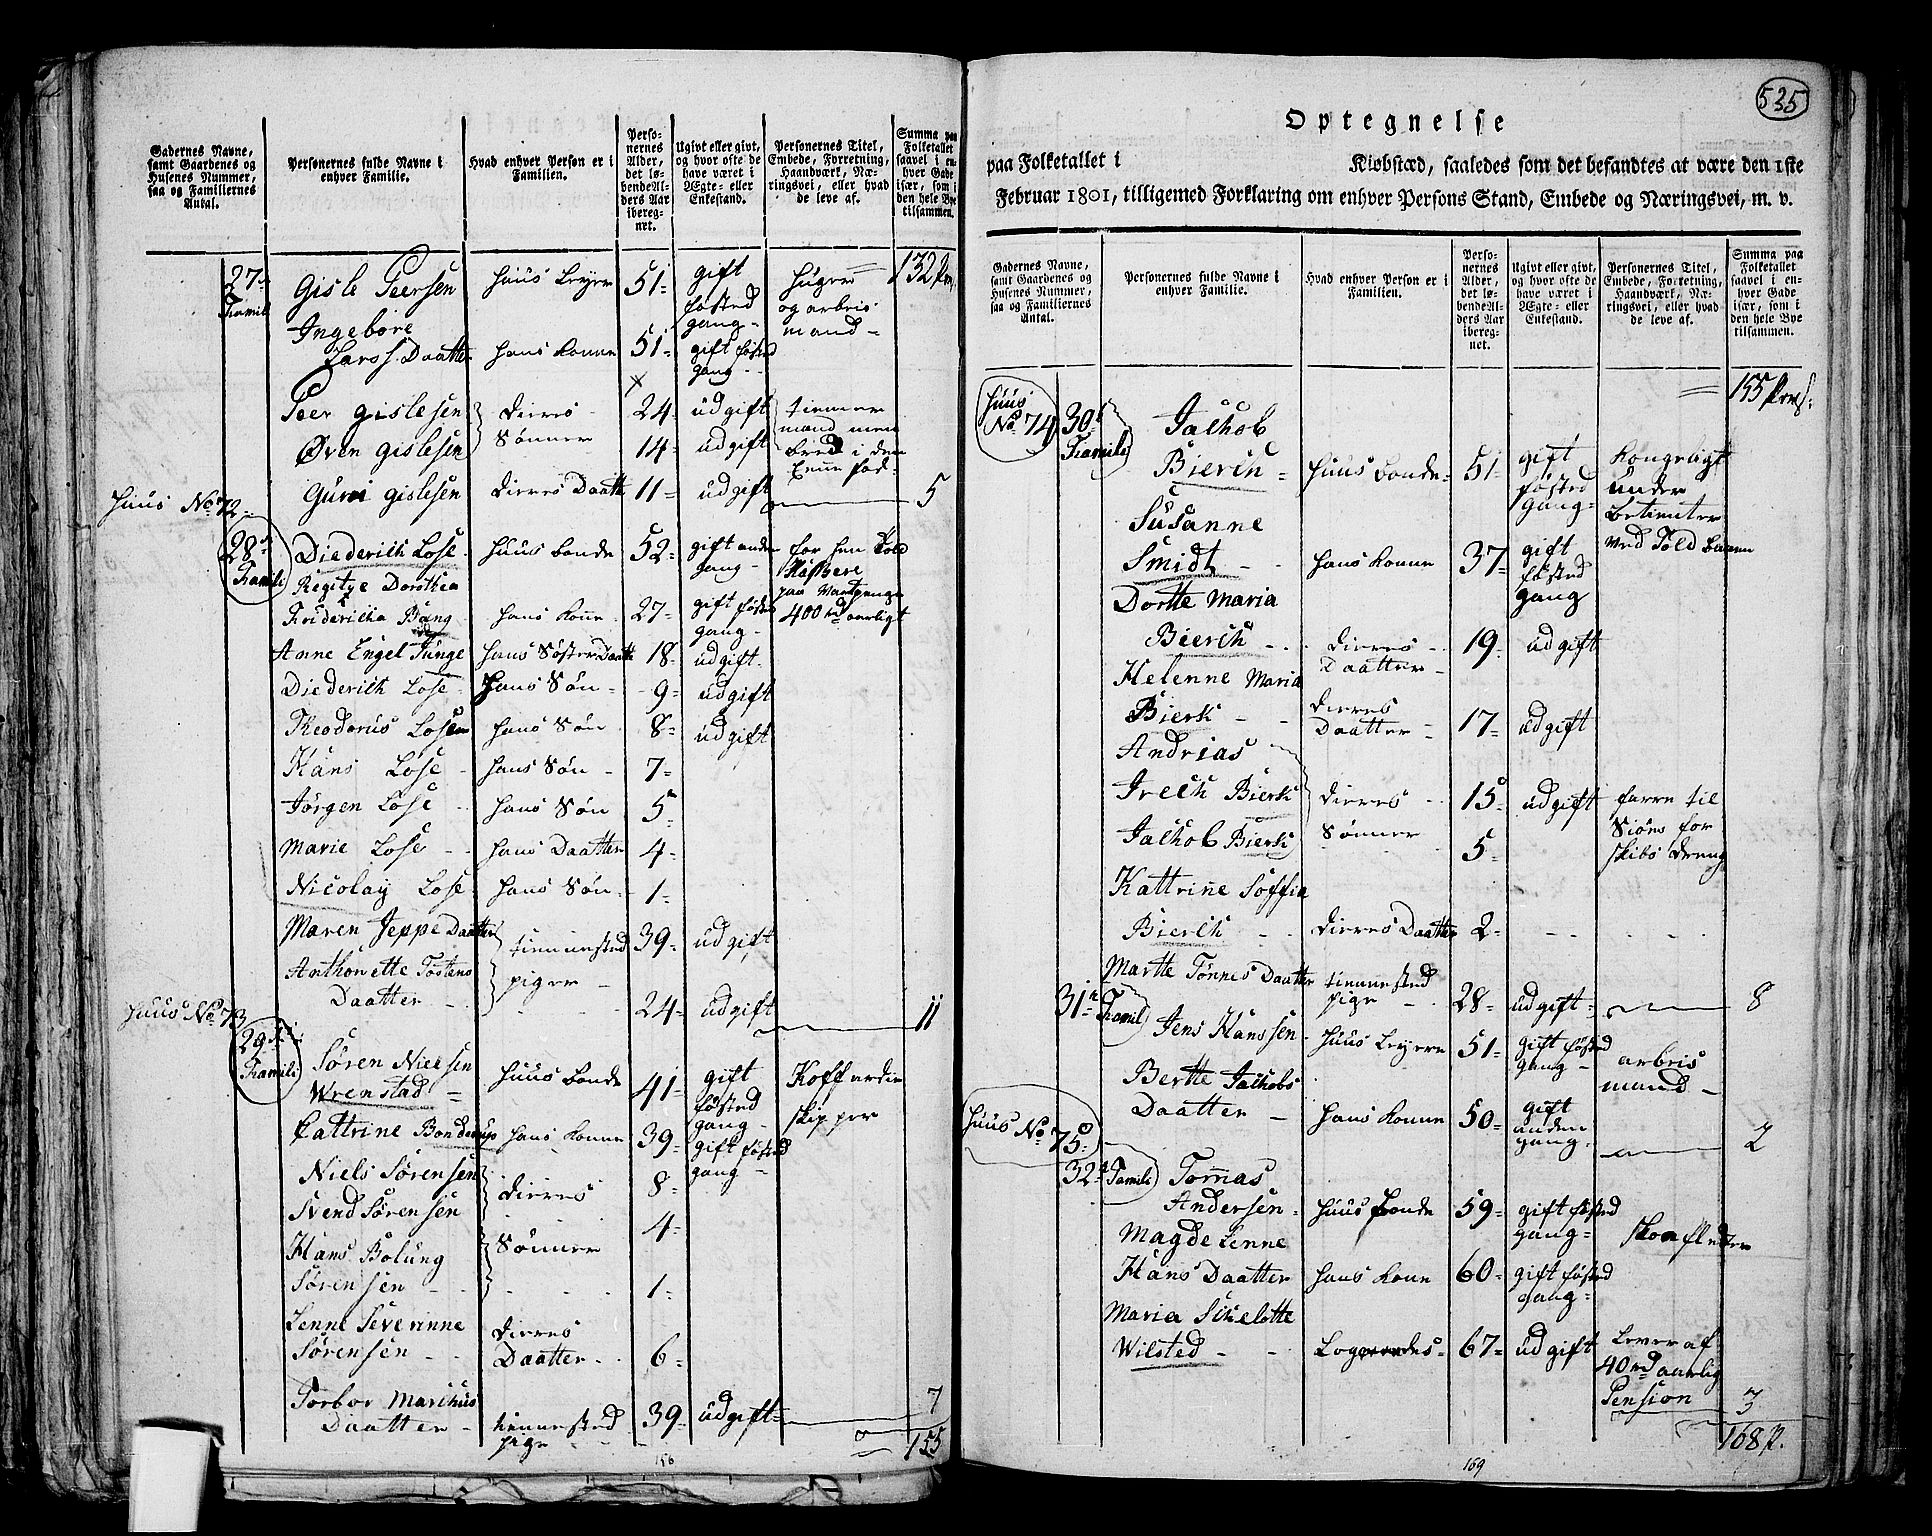 Gadernes Navne, samt Gaardenes og Husenes Nummer, saa og Familiernes Antal.
Personernes fulde Navne i enhver Familie.
Hvad enhver Person er i Familien.
Personernes Alder, det løbende Alders Aar iberegnet.
Ugivt eller givt, og hvor ofte de have været i Ægte- eller Enkestand.
Personernes Titel, Embede, Forretning, Haandværk, Næringsvei, eller hvad de leve af.
Summa paa Folketallet saavel i enhver Gade især, som i den hele Bye tilsammen.
132
27de Famili Gisle Peersen huus Leyer 51 gift føsted gang og arbris mand
Ingebøre Larss. Daatter hans Konne 51 gift føsted gang
Peer Gislesen dieres Sønner 24 udgift
Øven Gislesen 14 udgift
Guri Gislesen dieres Daatter 11 udgift 5
Huus No 72
28de Famili Diederich Lose huus bonde 52 gift anden gang
Regitze Dorothea
Friderikka Bang hans Konne 27 gift føsted gang 400 rd aarligt
Anne Engel Junge hans Søster Daatter 18 udgift
Diederich Lose hans Søn 9 udgift
Theodorus Losen hans Søn 8 udgift
Hans Lose hans Søn 7
Jørgen Lose hans Søn 5
Marie Lose hans Daatter 4
Nicolay Lose hans Søn 1
Maren Jeppe Daatter tiennested piger 39 udgift
Anthonette Tostens Daatter 24 udgift 11
Huus No 73
29de Famili Søren Nielsen
Wrenstad huus bonde 41 gift føsted gang Koffardie skipper
Cattrine Bonderup hans Konne 39 gift føsted gang
Niels Sørensen dieres 8
Svend Sørensen 4
Hans Bolung Sønner
Sørensen 1
Lenne Severinne dieres
Sørensen Daatter 6
Torbor Marchus Daatter tiennested pige 39 udgift 7
155
156
535
Optegnelse
paa Folketallet i Kiøbstæd, saaledes som det befandtes at være den 1ste
Februar 1801, tilligemed Forklaring om enhver Persons Stand, Embede og Næringsvei, m. v.
Gadernes Navne, samt Gaardenes og Husenes Nummer, saa og Familiernes Antal.
Personernes fulde Navne i enhver Familie.
Hvad enhver Person er i Familien.
Personernes Alder, det løbende Alders Aar iberegnet.
Ugivt eller givt, og hvor ofte de have været i Ægte- eller Enkestand.
Personernes Titel, Embede, Forretning, Haandværk, Næringsvei, eller hvad de leve af.
Summa paa Folketallet saavel i enhver Gade især, som i den hele Bye tilsammen.
155 Pers.
Huus No 74 30te Famili Jachob
Bierch huus bonde 51 gift føsted gang Kongeligt under betienter ved Told
Susanne
Smidt hans Konne 37 gift føsted gang
Dortte Maria
Bierch dieres Daatter 19 udgift
Helenne Maria
Bierk dieres Daatter 17 udgift
Andrias
Irech Bierk dieres Sønner 15 udgift farre til Siøns for skibs dreng
Jachob Bierk 5
Kattrinne Soffia
Bierch dieres Daatter 2
Martte Tønnes Daatter tiennested pige 28 udgift 8
31te Famil Jens Hanssen huus Leyere 51 gift føsted gang arbris mand
Bertte Jachobs
Daatter hans Konne 50 gift anden gang 2
Huus No 75
32te Famili Tommas
Andersen huus bonde 59 gift føsted gang
Magdelenne
Hans Daatter hans Konne 60 gift føsted gang
Maria
Wilsted 67 udgift Lever af 40 rd aarlig Pension 3
168 P.
169